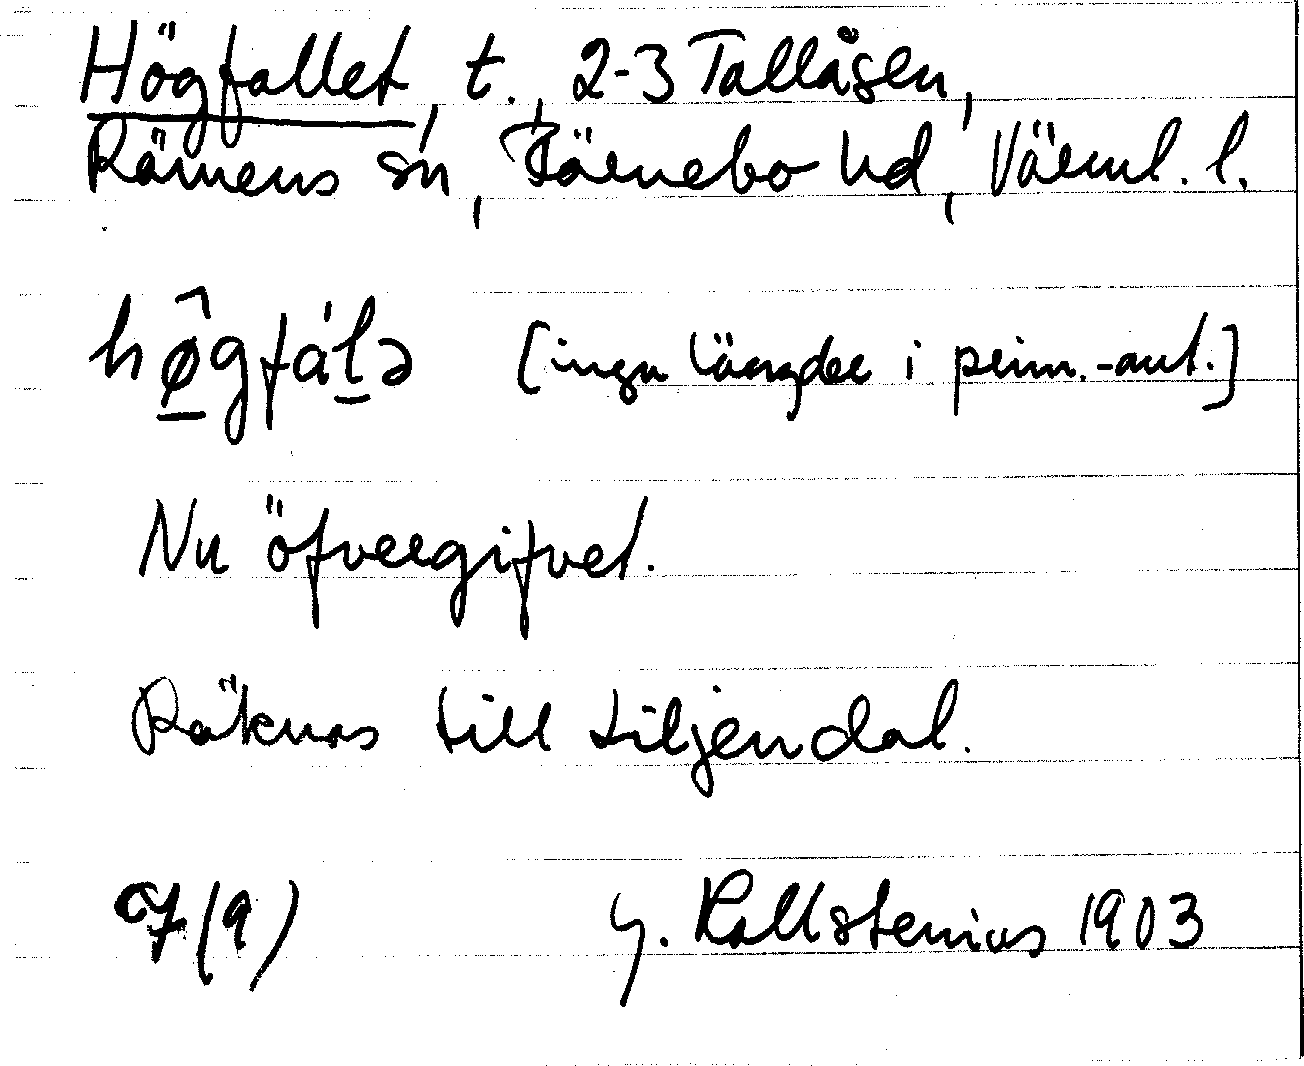 Högfallet, t., 2-3 Tallåsen,
Rämens sn, Färnebo hd, Värml. l.
hø̂gfálə [inga längder i prim.-aut.]
Nu öfvergifvet.
Räknas till Liljendal.
(9)
G. Kallstenius 1903